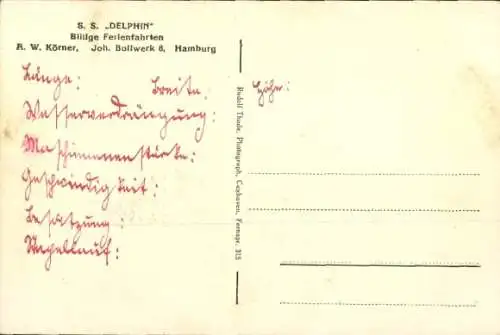 S. S. „DELPHIN"
Billige Ferienfahrten
A. W. Körner, Joh. Bollwerk 8, Hamburg
Länge: Breite: Höhe:
Wasserverdrängung:
Maschinenstärke:
Geschwindigkeit:
Besatzung:
Stapellauf:
Rudolf Thode, Photograph, Cuxhaven, Fernspr. 315